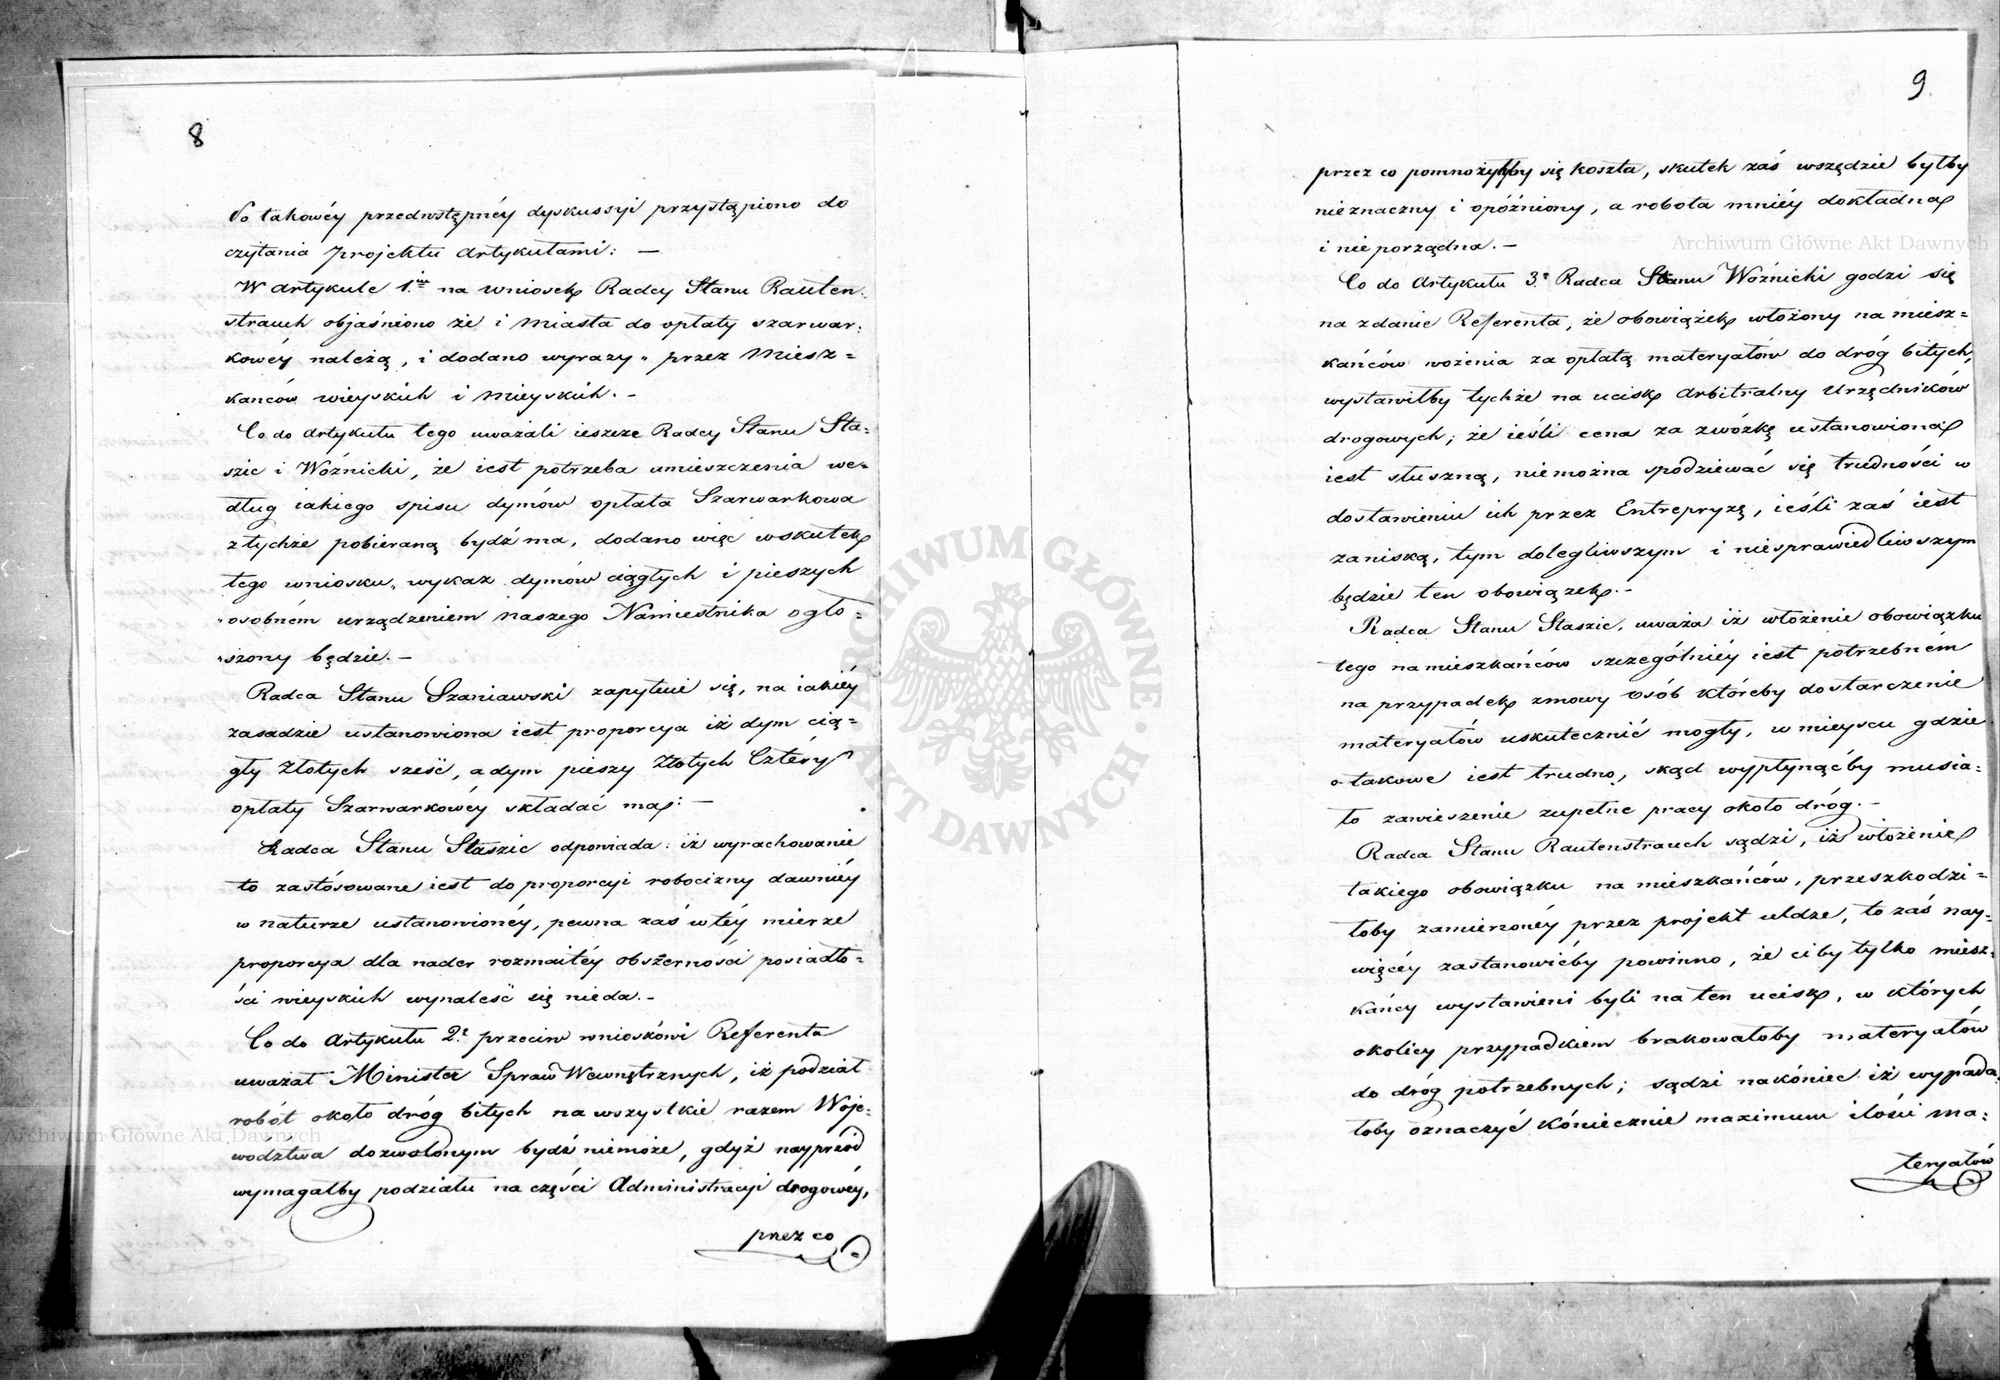 8
Po takowéy przedwstępnéy dyskussyi przystąpiono do
czytania projektu Artykułami: —
W Artykule 1.m na wniosek Radcy Stanu Rauten-
strauch objaśniono że i Miasta do opłaty szarwar-
kowéy należą, i dodano wyrazy „ przez Miesz-
kańców wieyskich i Mieyskich. –
Co do Artykułu tego uważali ieszcze Radcy Stanu Sta-
szic i Woźnicki, że iest potrzeba umieszczenia we-
dług iakiego spisu dymów opłata Szarwarkowa
z tychże pobieraną bydź ma, dodano więc wskutek
tego wniosku „ wykaz dymów ciągłych i pieszych
„osobném urządzeniem naszego Namiestnika ogło-
„szony będzie. –
Radca Stanu Szaniawski zapytuie się, na iakiéy
zasadzie ustanowiona iest proporcya iż dym cią-
gły Złotych sześć, a dym pieszy Złotych Cztéry
opłaty Szarwarkowéy składać ma: –
Radca Stanu Staszic odpowiada: iż wyrachowanie
to zastósowane iest do proporcyi robocizny dawniéy
w naturze ustanowionéy, pewna zaś w téy mierze
proporcya dla nader rozmaitéy obszerności posiadło-
ści wieyskich wynaleść się nieda. –
Co do Artykułu 2.o przeciw wnioskówi Referenta
uważał Minister Spraw Wewnętrznych, iż podział
robót około dróg bitych na wszystkie razem Woje-
wództwa dozwolonym bydź niemoże, gdyż nayprzód
wymagałby podziału na części Administracyi drogowéy,
przez co
9.
przez co pomnożyłyby się koszta, skutek zaś wszędzie byłby
nieznaczny i opóźniony, a robota mniéy dokładna
i nieporządna. –
Co do Artykułu 3.o Radca Stanu Woźnicki godzi się
na zdanie Referenta, że obowiązek włożony na miesz-
kańców wożenia za opłatą materyałów do dróg bitych,
wystawiłby tychże na ucisk arbitralny Urzędników
drogowych; że ieśli cena za zwózkę ustanowiona
iest słuszną, niemożna spodziewać się trudności w
dostawieniu ich przez Entrepryzę, ieśli zaś iest
zaniską, tym dolegliwszym i niesprawiedliwszym
będzie ten obowiązek. –
Radca Stanu Staszic, uważa iż włożenie obowiązku
tego na mieszkańców szczególniéy iest potrzebném
na przypadek zmowy osób któreby dostarczenie
materyałów uskutecznić mogły, w mieyscu gdzie
o takowe iest trudno, skąd wypłynąćby musia-
ło zawieszenie zupełne pracy około dróg. –
Radca Stanu Rautenstrauch sądzi, iż włożenie
takiego obowiązku na mieszkańców, przeszkodzi-
łoby zamierzonéy przez projekt uldze, to zaś nay-
więcéy zastanowićby powinno, że ciby tylko miesz-
kańcy wystawieni byli na ten ucisk, w których
okolicy przypadkiem brakowałoby materyałów
do dróg potrzebnych; sądzi nakóniec iż wypada-
łoby oznaczyć kóniecznie maximum ilości ma-
teryałów
ARCHIWUM GŁÓWNE AKT DAWNYCH
Archiwum Główne Akt Dawnych
Archiwum Główne Akt Dawnych